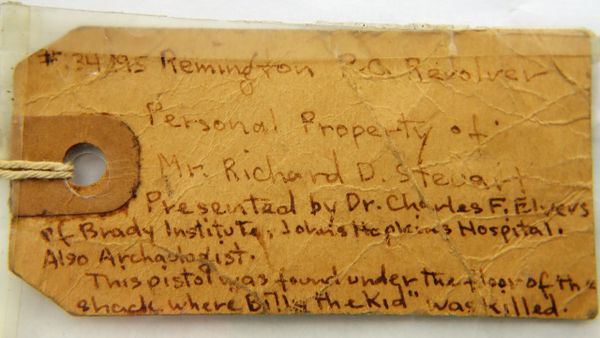 #.34195 Remington P.C. Revolver
Personal Property of
Mr. Richard D. Steuart
Presented by Dr. Charles F. Elvers
of Brady Institute, Johns Hopkins Hospital.
Also Archaologist.
This pistol was found under the floor of the
shack where Billy the Kid" was killed.